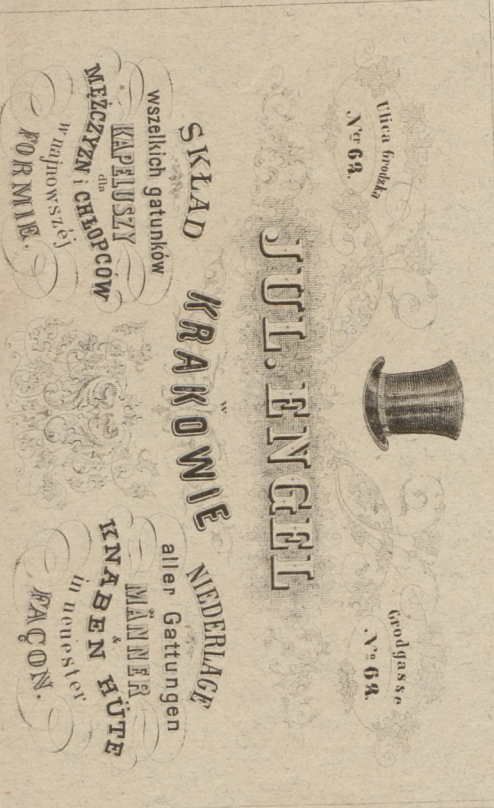 Ulica Grodzka
Ner 68.
Grodgasse
No 68.
JUL. ENGEL
w
KRAKOWIE
SKŁAD
wszelkich gatunków
KAPELUSZY
dla
MĘŻCZYZN i CHŁOPCÓW
w najnowszéj
FORMIE.
NIEDERLAGE
aller Gattungen
MÄNNER
&
KNABEN HÜTE
in neuester
FAÇON.